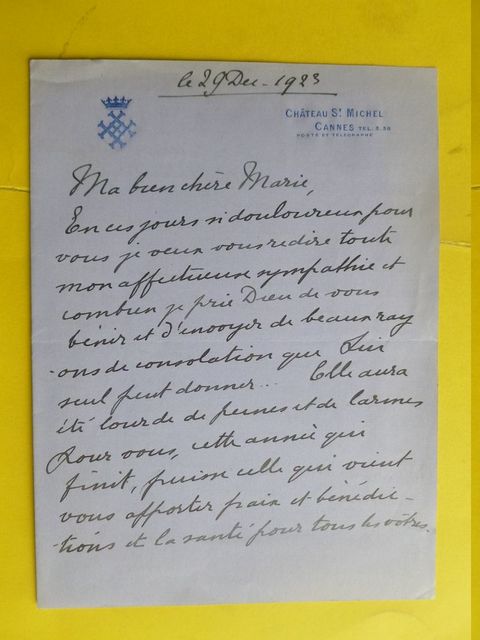 le 29 Dec. 1923
CHÂTEAU St MICHEL
CANNES TEL. 5.38
POSTE ET TÉLÉGRAPHE
Ma bien chère Marie,
En ces jours si douloureux pour
vous je veux vous redire toute
mon affectueuse sympathie et
combien je prie Dieu de vous
bénir et d'envoyer de beaux ray
-ons de consolation que Lui
seul peut donner... Elle aura
été lourde de peines et de larmes
pour vous, cette année qui
finit, puisse celle qui vient
vous apporter paix et bénédic-
-tions et la santé pour tous les vôtres.